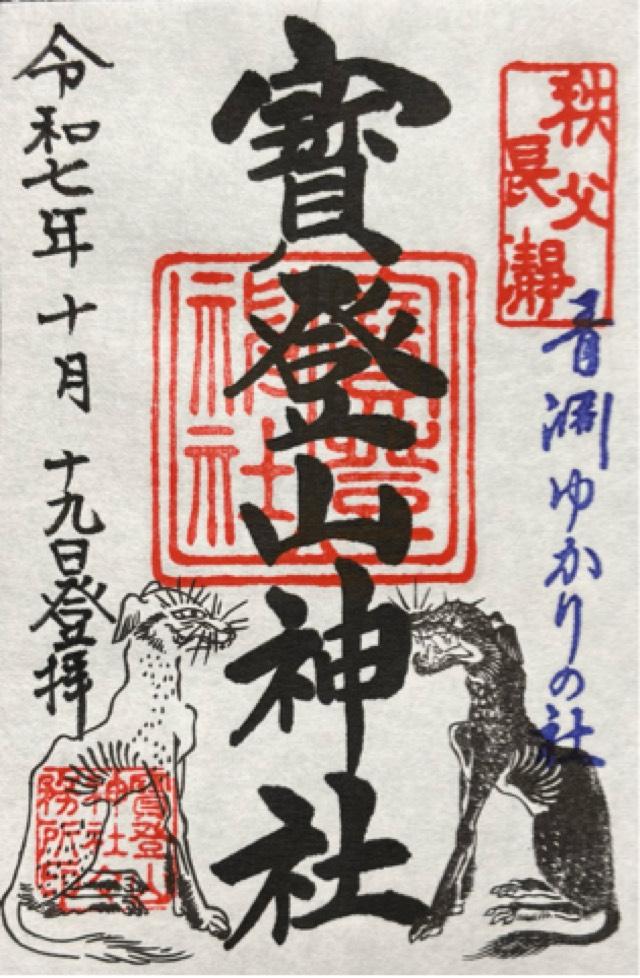 秩父
長瀞
青淵ゆかりの社
寳登山神社
寳登山
神社
令和七年十月十九日登拝
寳登山
神社
務所印